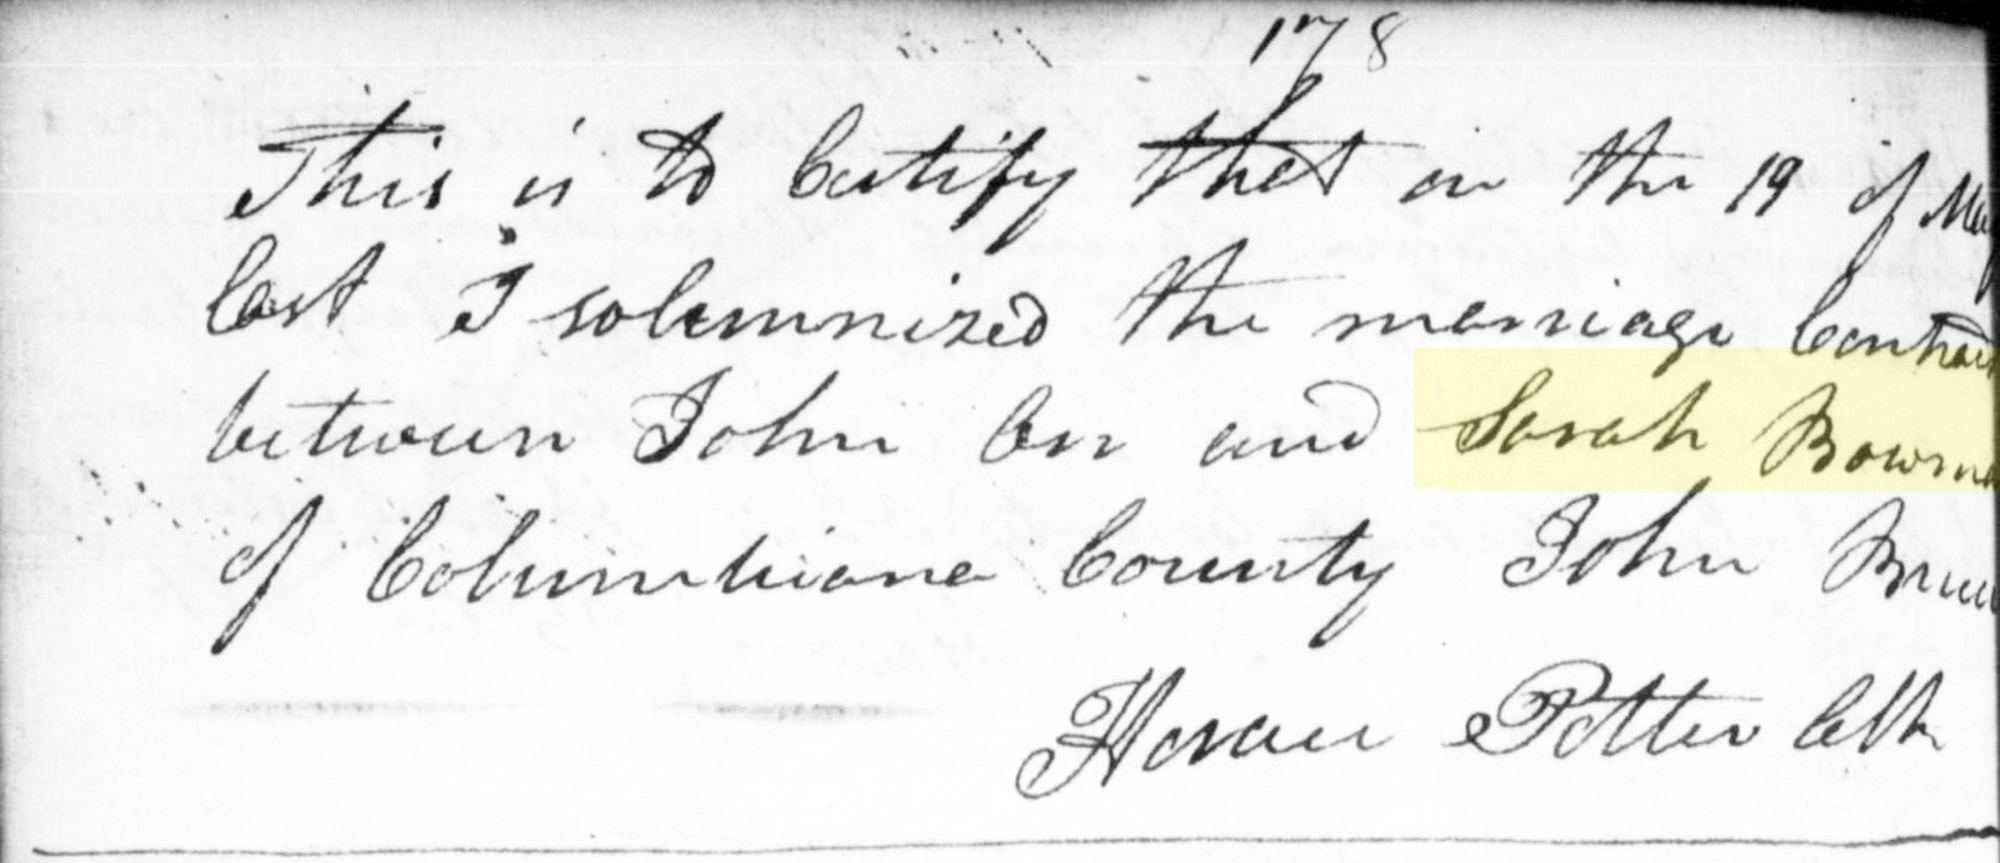 178
This is to Certify that on the 19 of May
last I solemnized the marriage Contract
between John and Sarah Bowma
of Columbiana County John Bruce
Horace Potter Clk